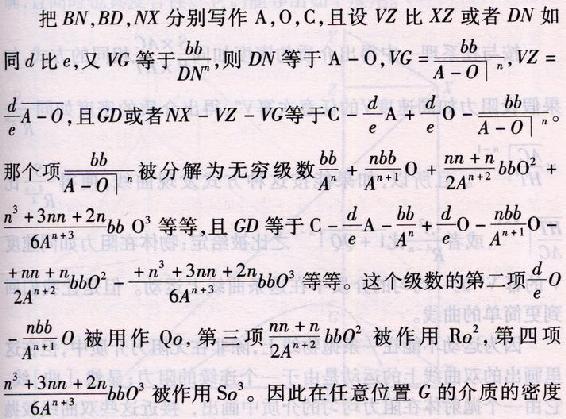 把 BN,BD,NX 分别写作 A,O,C,且设 VZ 比 XZ 或者 DN 如
同 d 比 e,又 VG 等于 bb/DNⁿ,则 DN 等于 A－O,VG = bb/A－O|ⁿ,VZ =
d/e A－O,且GD或者NX－VZ－VG等于C－d/e A + d/e O－bb/A－O|ⁿ。
那个项 bb/A－O|ⁿ 被分解为无穷级数 bb/Aⁿ + nbb/Aⁿ⁺¹ O + nn + n/2Aⁿ⁺² bbO² +
n³ + 3nn + 2n/6Aⁿ⁺³ bb O³ 等等,且 GD 等于 C－d/e A－bb/Aⁿ + d/e O－nbb/Aⁿ⁺¹ O
+ nn + n/2Aⁿ⁺² bbO²－+ n³ + 3nn + 2n/6Aⁿ⁺³ bbO³ 等等。这个级数的第二项 d/e O
－nbb/Aⁿ⁺¹ O 被用作 Qo,第三项 nn + n/2Aⁿ⁺² bbO² 被用作 Ro²,第四项
n³ + 3nn + 2n/6Aⁿ⁺³ bbO³ 被用作 So³。因此在任意位置 G 的介质的密度